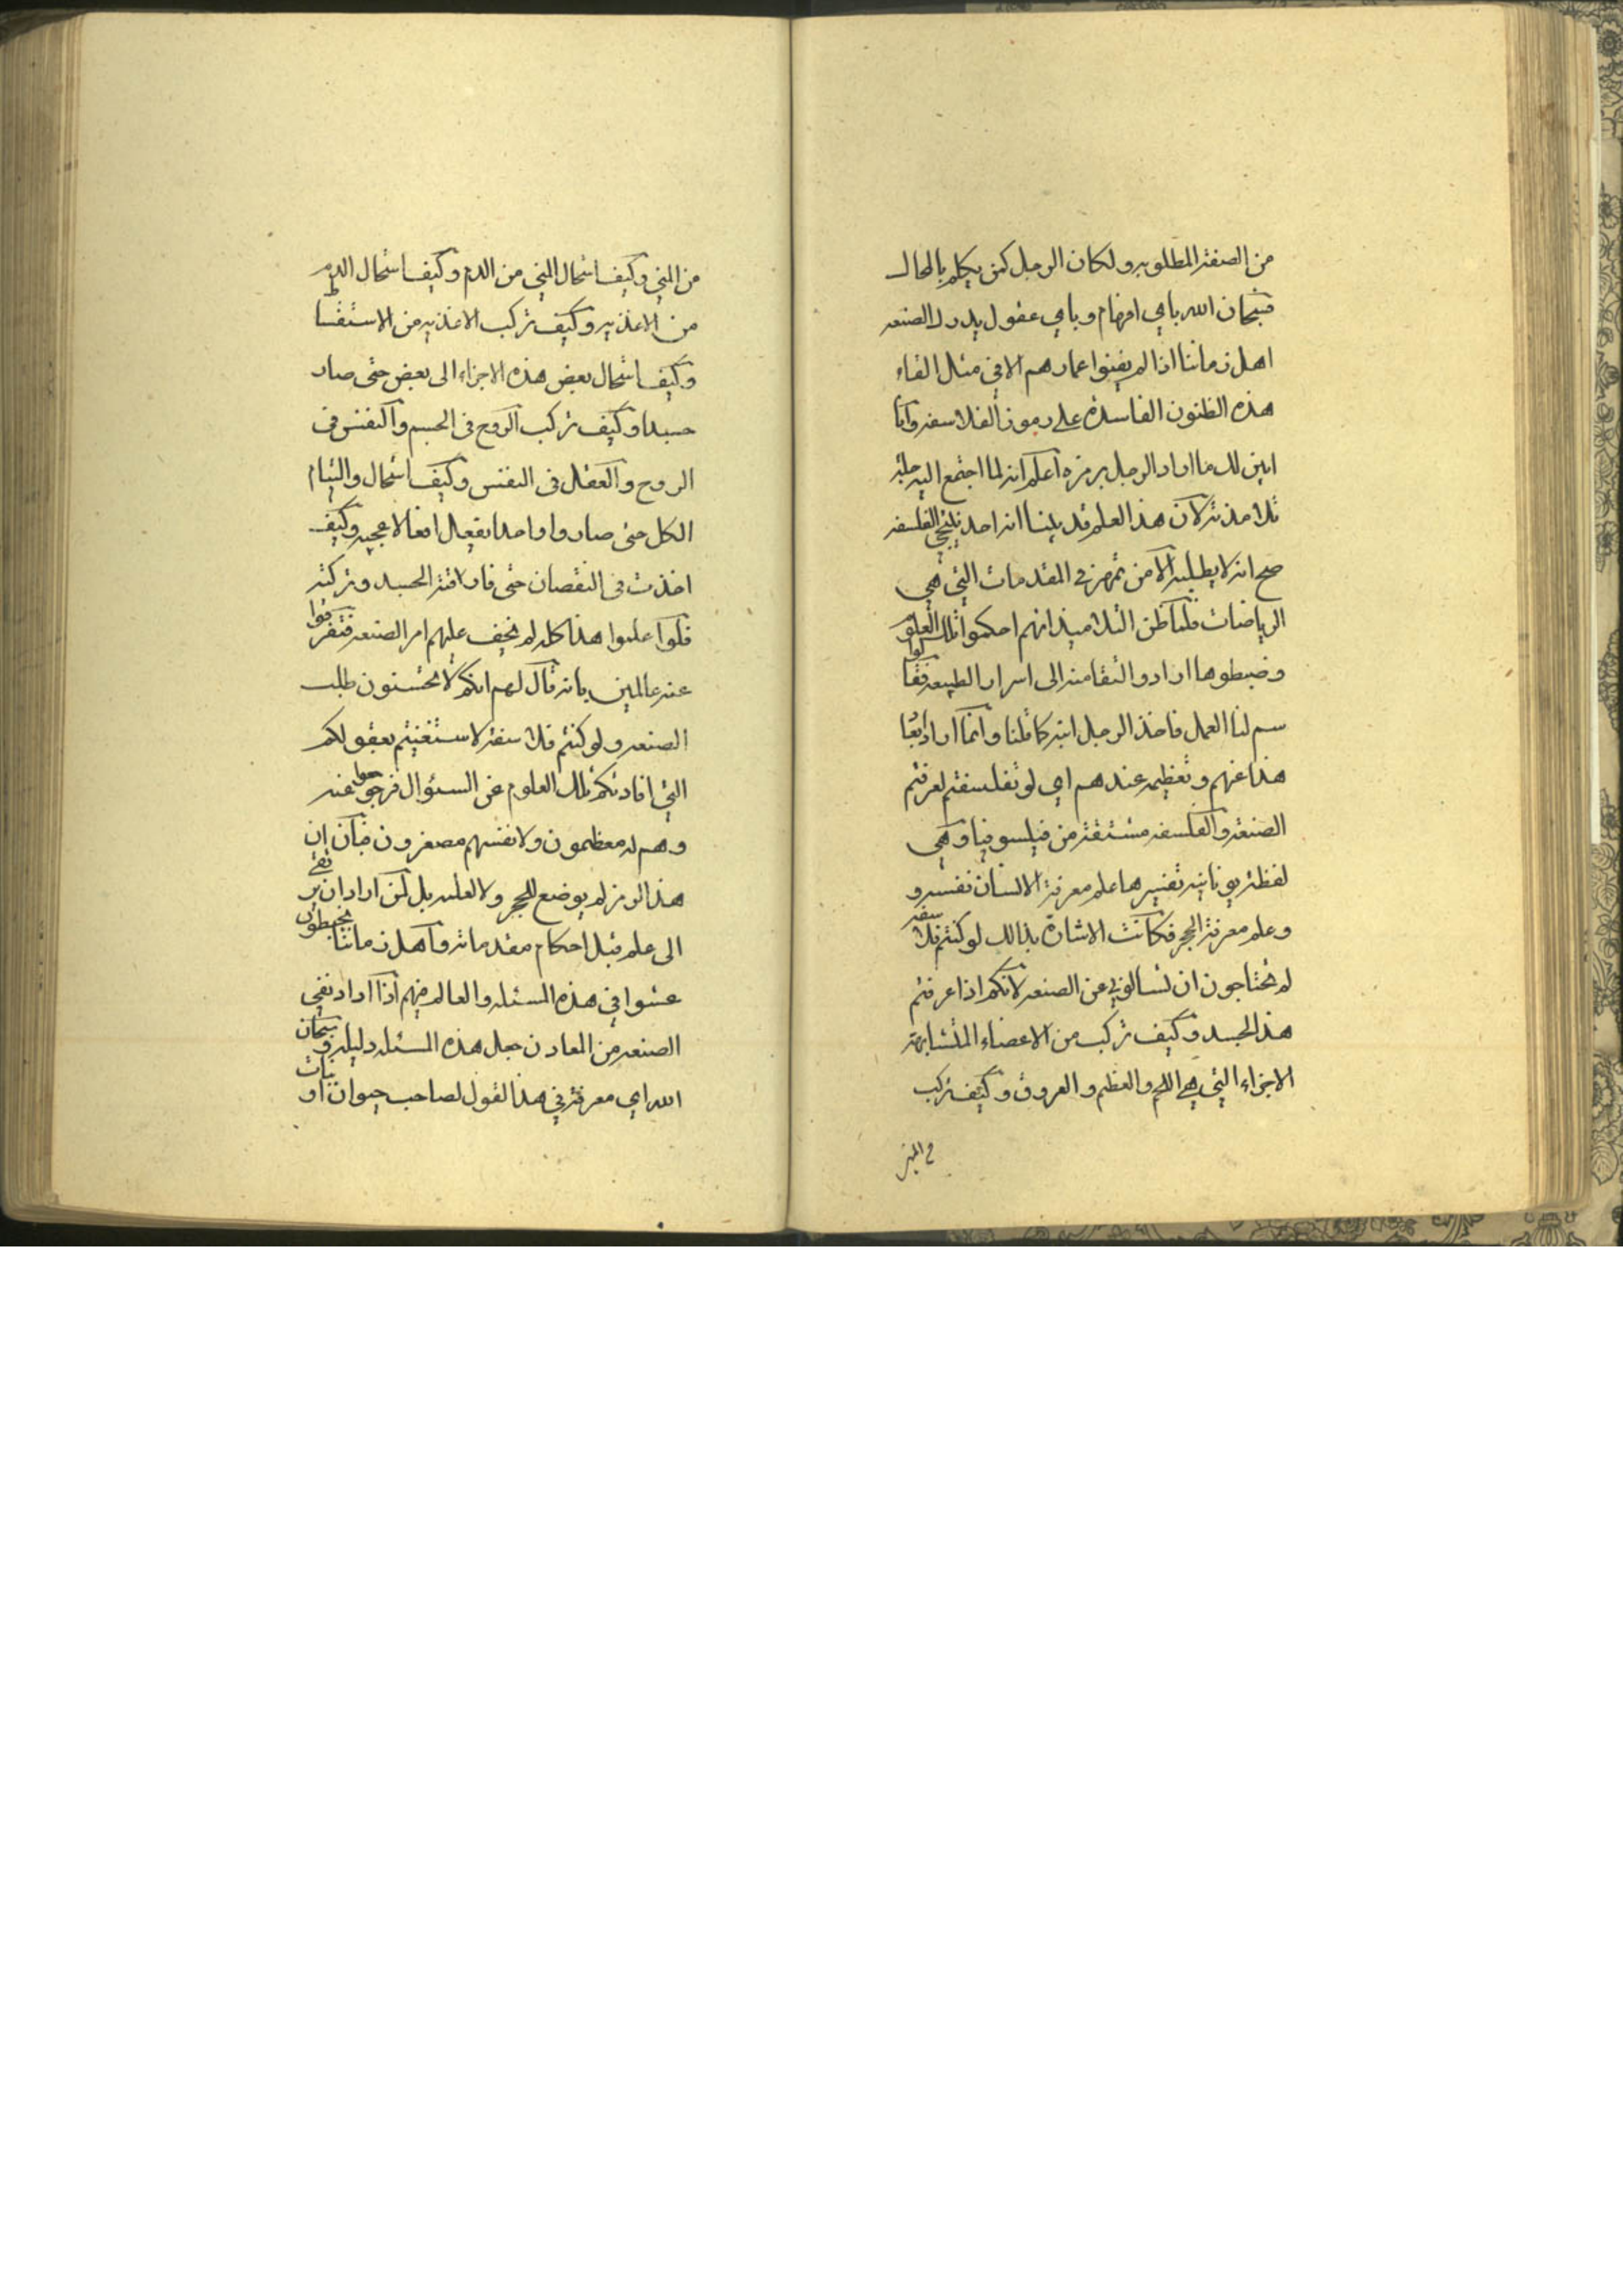 من الصفة المطلوبه ولكان الرجل كمن يكلم بالمحال
فسبحان الله باي افهام وباي عقول يدرك الصنعه
اهل زماننا اذا لم يفنوا عمارهم الا في مثل القاء
هذه الظنون الفاسدة على رموز الفلاسفه وانا
ابين لك ما اراد الرجل برمزه اعلم انه لما اجتمع اليه جلة
تلامذته لان هذا العلم قد بينا انه احد الفلسفه
صح انه لا يطلبه الا من تمهر في المقدمات التي هي
الرياضات فلما ظن التلاميذ انهم احكموا تلك العلوم
وضبطوها ارادوا النقا منه الى اسرار الطبيعه فقالوا
سم لنا العمل فاخذ الرجل ابنه كما قلنا وانما اراد
هذا عنهم وتعظيمه عندهم اي لو تفلسفتم لعرفتم
الصنعة والفلسفه مشتقة من فيلسوفيا وهي
لفظة يونانيه تفسيرها علم معرفة الانسان نفسه و
وعلم معرفة الحجر فكانت الاشارة بذالك لو كنتم فلاسفه
لم تحتاجون ان تسالوني عن الصنعه لانكم اذا عرفتم
هذا الجسد وكيف تركب من الاعضاء المتشابهة
الاجزاء التي هي اللحم والعظم والعروق وكيف تركب
من المني وكيف استحال المني من الدم وكيف استحال الدم
من الاغذيه وكيف تركب الاغذيه من الاستقسا
وكيف استحال بعض هذه الاجزاء الى بعض حتى صار
جسدا وكيف تركب الروح في الجسم والنفس في
الروح والعقل في النفس وكيف استحال والتيام
الكل حتى صار واواحدا بفعيل افعالا عجيبه وكيف
اخذت في النقصان حتى فارقة الجسد وتركته
فلو اعلموا هذا كله لم يخف عليهم امر الصنعه فتفرقوا
عنه عالمين بانه قال لهم انكم لا تحسنون طلب
الصنعه ولو كنتم فلاسفة لاستغنيتم بعقولكم
التي افادتكم تلك العلوم عن السئوال فرجوا عنه
وهم له معظمون ولانفسهم مصغرون فبان ان
هذا الرمز لم يوضع للحجر ولا لعلمه بل لمن اراد ان يرتقي
الى علم قبل احكام مقدماته واهل زماننا يخبطون
عشوا في هذه المسئله والعالم فيهم اذا اراد نفي
الصنعه من المعادن جعل هذه المسئله دليله وسبحان
الله اي معرفة في هذا القول لصاحب حيوان او نبات